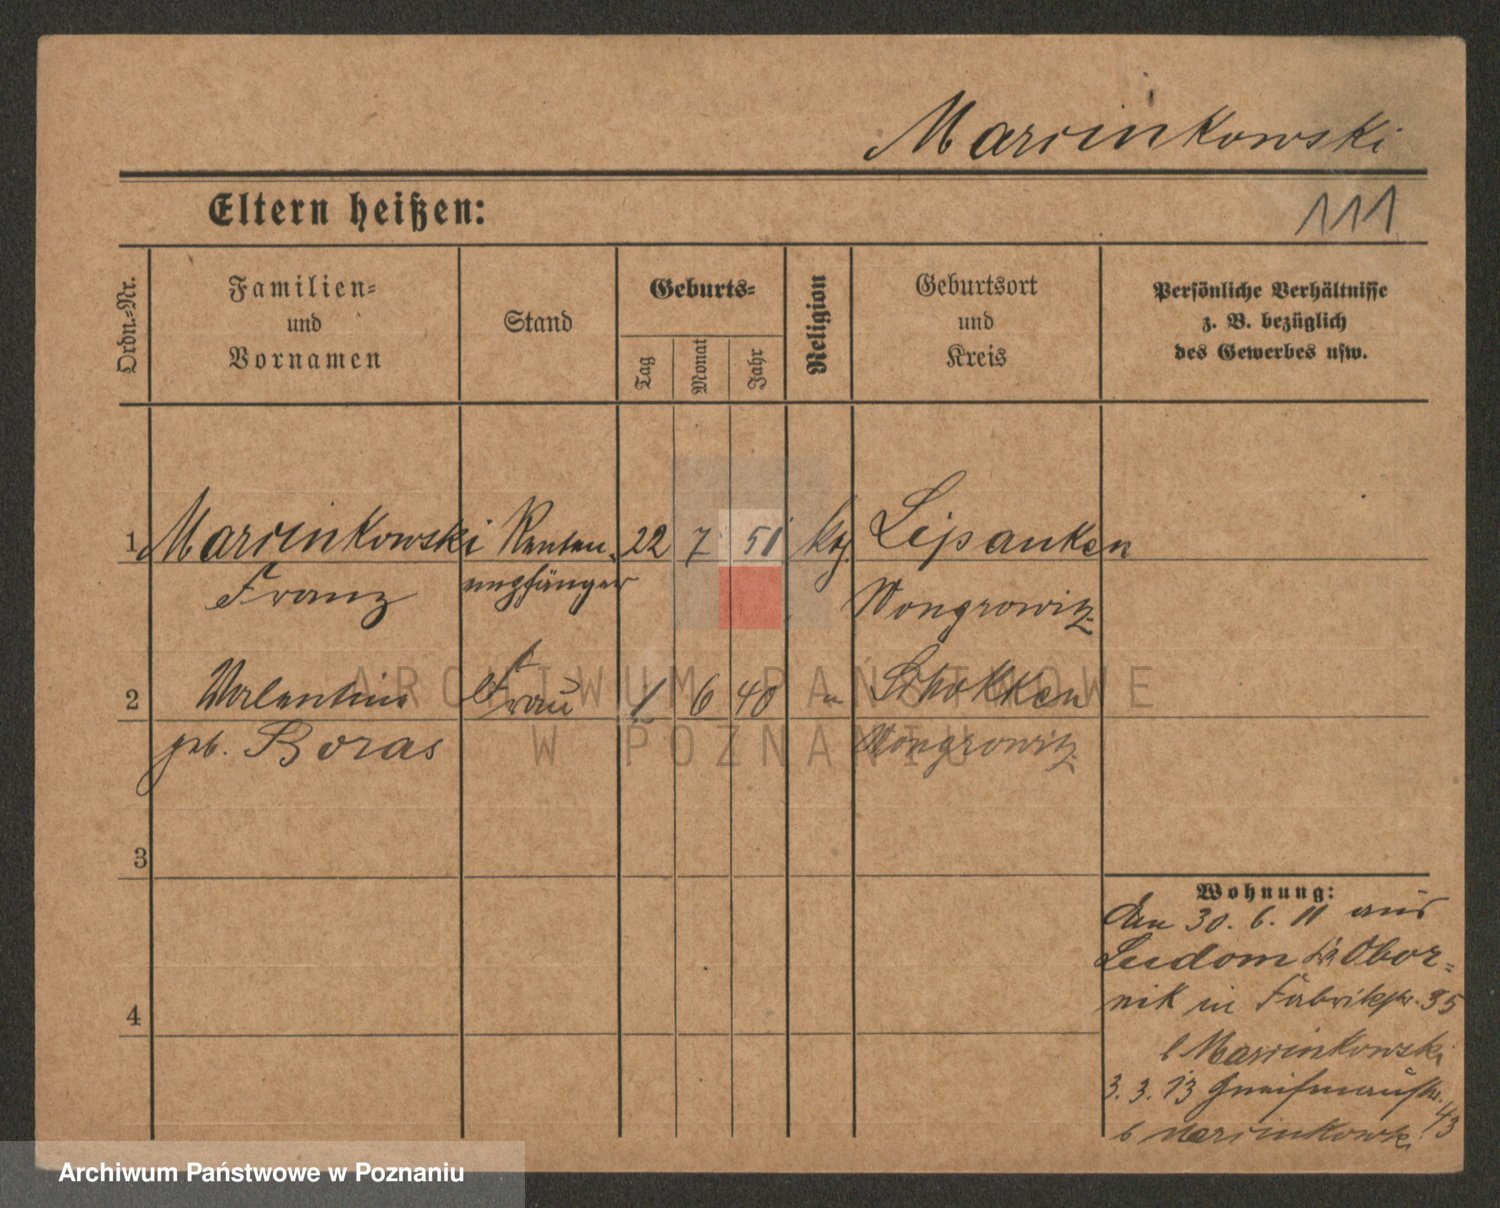 Marcinkowski
Eltern heißen:
111
Ordn.-Nr.
Familien-
und
Vornamen
Stand
Geburts-
Tag
Monat
Jahr
Religion
Geburtsort
und
Kreis
Persönliche Verhältnisse
z. B. bezüglich
des Gewerbes usw.
1 Marcinkowski Renten 22 7 51 Lipanken
Franz empfänger Wongrowitz
2 Valentine Frau 1 6 40 " Schokken
geb. Boras Wongrowitz
3
4
Wohnung:
Den 30. 6. 11 aus
Ludom Obor-
nik in Fabrikstr. 35
b Marcinkowski
3. 3. 13 Gneisenaustr.
43
b Marcinkowski
ARCHIWUM PAŃSTWOWE
W POZNANIU
Archiwum Państwowe w Poznaniu